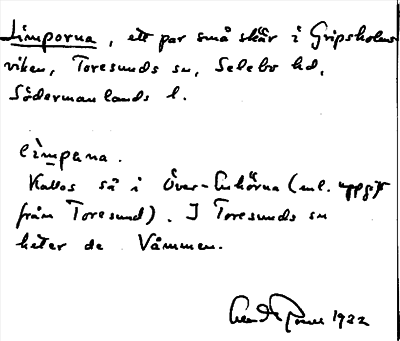 Limporna, ett par små skär i Gripsholms-
viken, Toresunds sn, Selebo hd,
Södermanlands l.
lìmpena.
Kallas så i Över-Enhörna (enl. uppgift
från Toresund). I Toresunds sn
heter de Våmmen.
1922